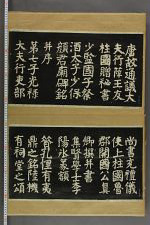 唐故通議大
夫行薛王友
柱國贈秘書
少監國子祭
酒太子少保
顏君廟碑銘
并序
第七子光祿
大夫行吏部
尚書充禮儀
使上柱國魯
郡開國公真
卿撰并書
集賢學士李
陽冰篆額
昔孔悝有夷
鼎之銘陸機
有祠堂之頌